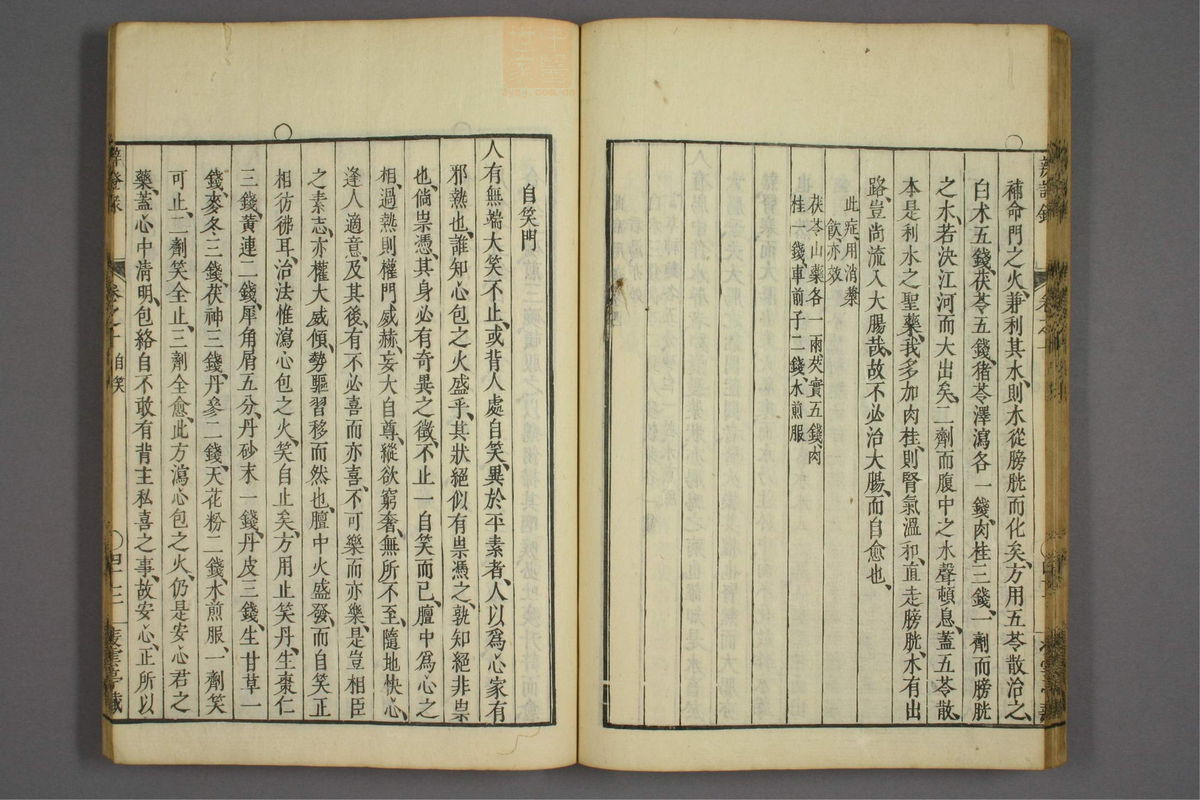 補命門之火、兼利其水、則水從膀胱而化矣、方用五苓散治之、
白朮五錢、茯苓五錢、猪苓澤瀉各一錢、肉桂三錢、一劑而膀胱
之水、若決江河而大出矣、二劑而腹中之水聲頓息、蓋五苓散、
本是利水之聖藥、我多加肉桂、則腎氣溫和、直走膀胱、水有出
路、豈尚流入大腸哉、故不必治大腸、而自愈也、
此症、用消漿
飲亦效、
茯苓山藥各一兩、芡實五錢、肉
桂一錢、車前子二錢、水煎服、
自笑門
人有無端大笑不止、或背人處自笑、異於平素者、人以爲心家有
邪熱也、誰知心包之火盛乎、其狀絕似有祟憑之、孰知絕非祟
也、倘祟憑其身、必有奇異之徵、不止一自笑而已、膻中爲心之
相、過熱則權門威赫、妄大自尊、縱欲窮奢、無所不至、隨地快心、
逢人適意、及其後、有不必喜而亦喜、不可樂而亦樂、是豈相臣
之素志、亦權大威傾、勢驅習移而然也、膻中火盛發、而自笑正
相彷彿耳、治法惟瀉心包之火、笑自止矣、方用止笑丹、生棗仁
三錢、黃連二錢、犀角屑五分、丹砂末一錢、丹皮三錢、生甘草一
錢、麥冬三錢、茯神三錢、丹參二錢、天花粉二錢、水煎服、一劑笑
可止、二劑笑全止、三劑全愈、此方瀉心包之火、仍是安心君之
藥、蓋心中清明、包絡自不敢有背主私喜之事、故安心、正所以
辨證錄 卷之十 自笑